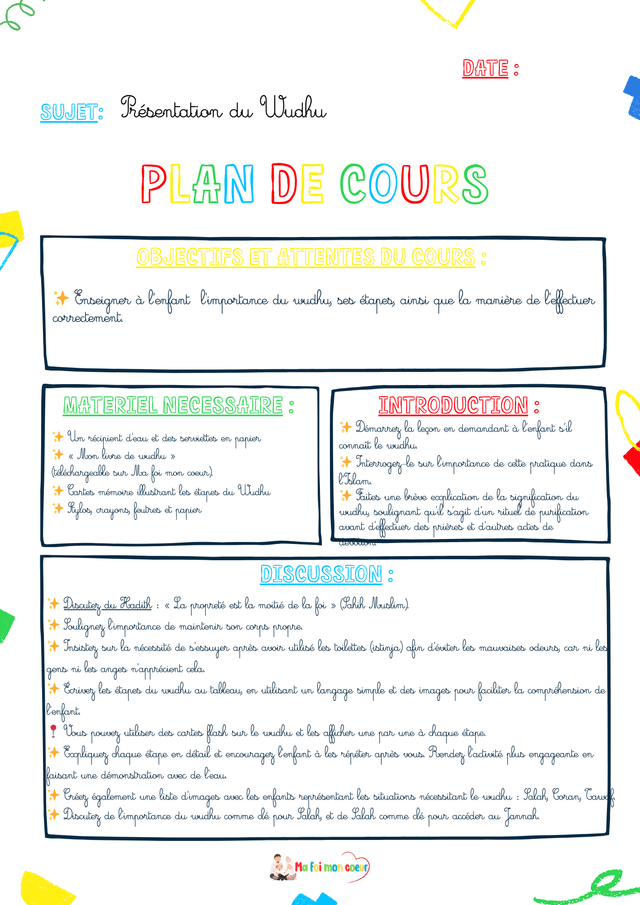 DATE :
SUJET: Présentation du Wudhu
PLAN DE COURS
OBJECTIFS ET ATTENTES DU COURS :
Enseigner à l'enfant l'importance du wudhu, ses étapes, ainsi que la manière de l'effectuer
correctement.
MATERIEL NECESSAIRE :
Un récipient d'eau et des serviettes en papier
« Mon livre de wudhu »
(téléchargeable sur Ma foi mon coeur).
Cartes mémoire illustrant les étapes du Wudhu
Stylos, crayons, feutres et papier
INTRODUCTION :
Démarrez la leçon en demandant à l'enfant s'il
connaît le wudhu.
Interrogez-le sur l'importance de cette pratique dans
l'Islam.
Faites une brève explication de la signification du
wudhu, soulignant qu'il s'agit d'un rituel de purification
avant d'effectuer des prières et d'autres actes de
dévotion.
DISCUSSION :
Discutez du Hadith : « La propreté est la moitié de la foi » (Sahih Muslim).
Soulignez l'importance de maintenir son corps propre.
Insistez sur la nécessité de s'essuyer après avoir utilisé les toilettes (istinja) afin d'éviter les mauvaises odeurs, car ni les
gens ni les anges n'apprécient cela.
Écrivez les étapes du wudhu au tableau, en utilisant un langage simple et des images pour faciliter la compréhension de
l'enfant.
Vous pouvez utiliser des cartes flash sur le wudhu et les afficher une par une à chaque étape.
Expliquez chaque étape en détail et encouragez l'enfant à les répéter après vous. Rendez l'activité plus engageante en
faisant une démonstration avec de l'eau.
Créez également une liste d'images avec les enfants représentant les situations nécessitant le wudhu : Salah, Coran, Tawaf.
Discutez de l'importance du wudhu comme clé pour Salah, et de Salah comme clé pour accéder au Jannah.
Ma foi mon coeur